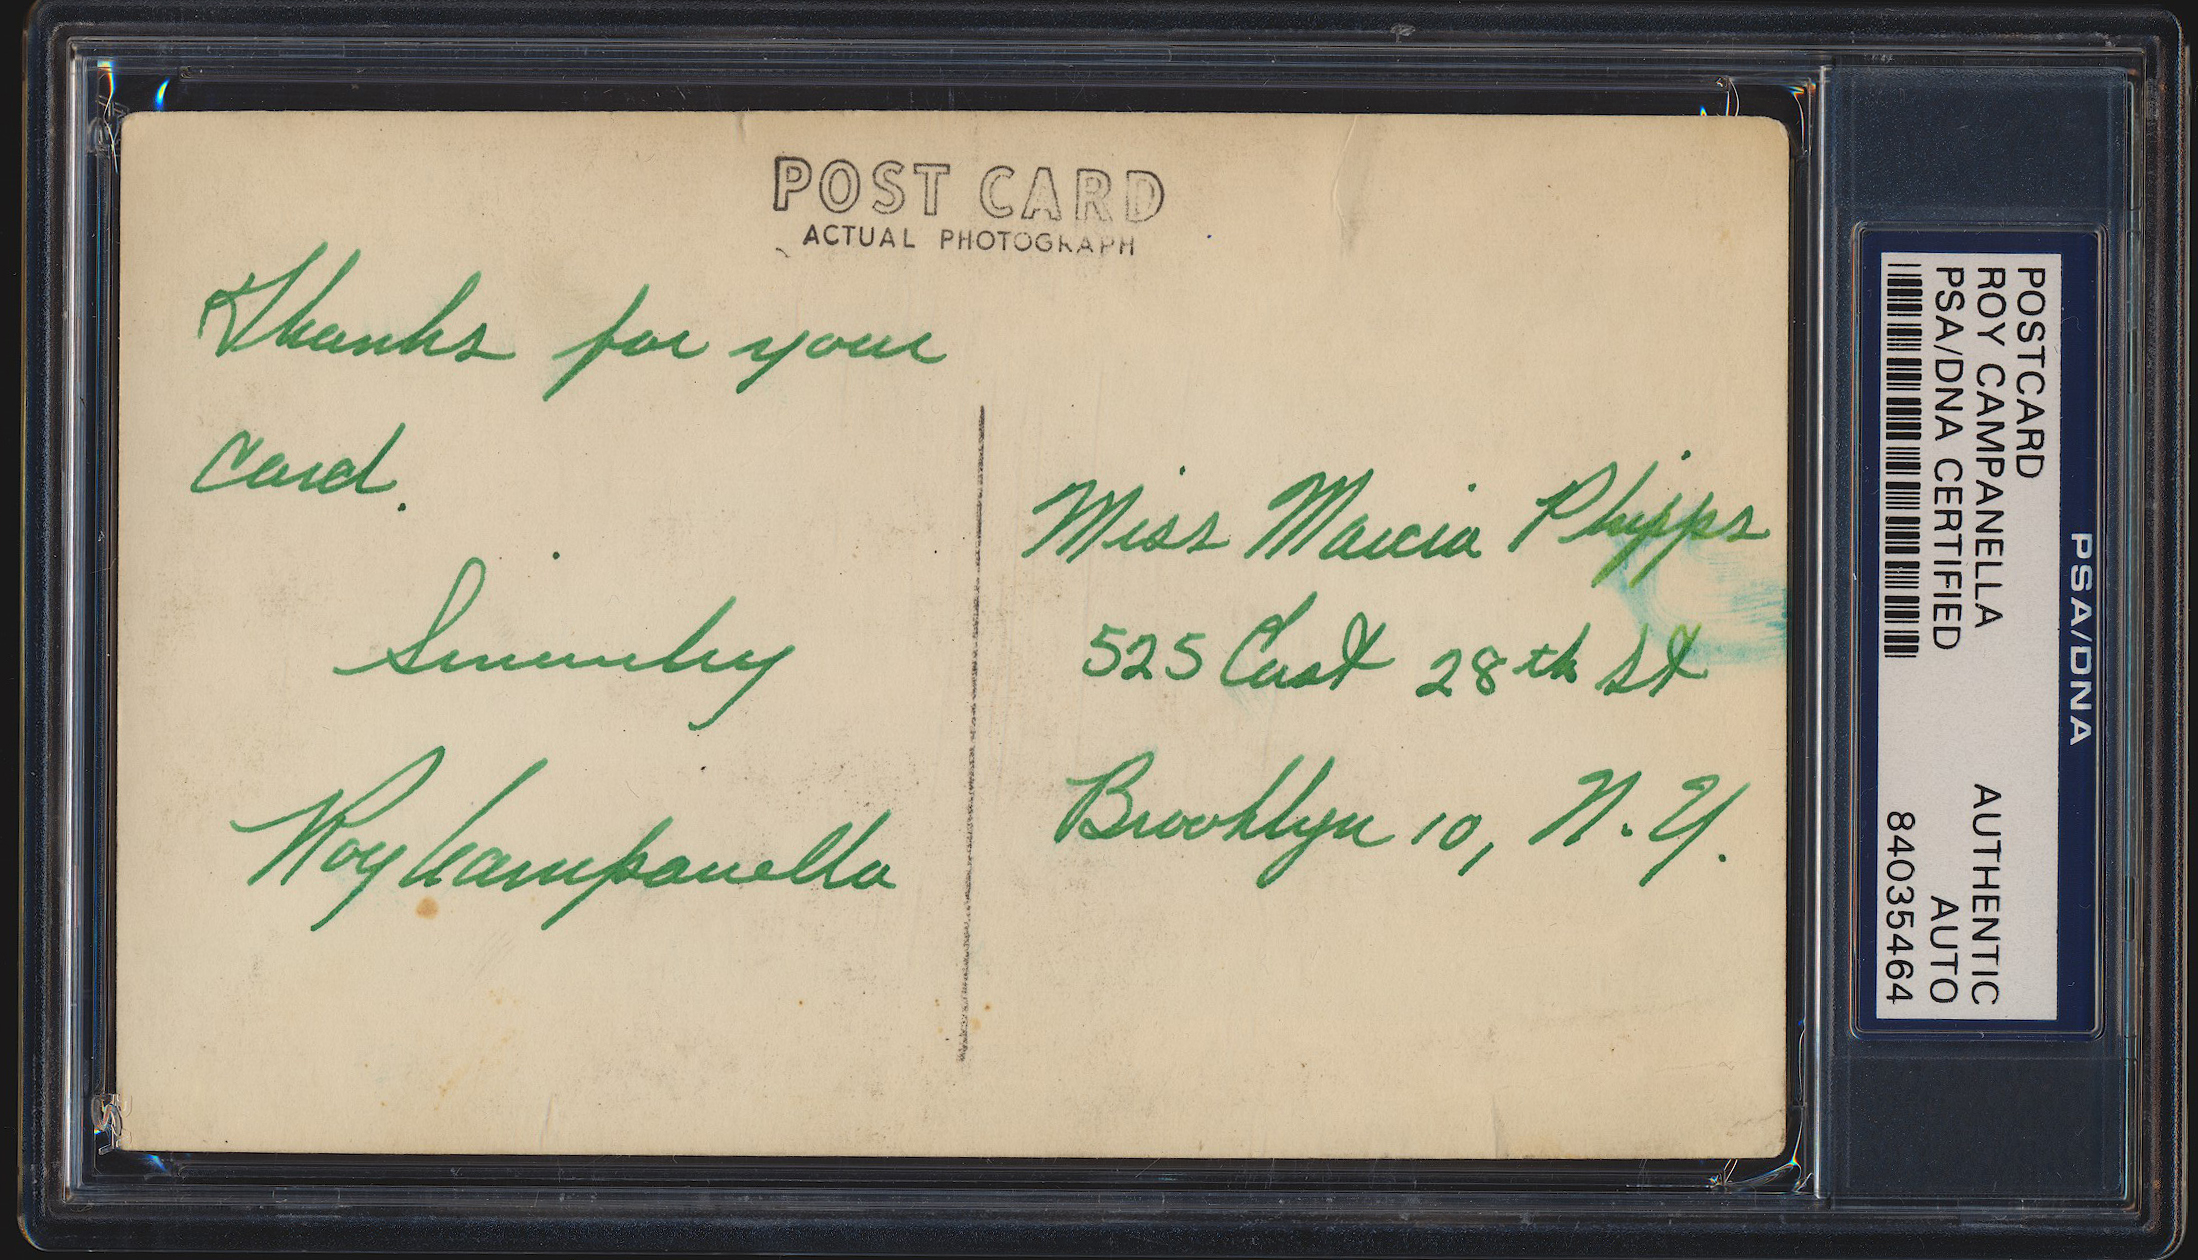 POST CARD
ACTUAL PHOTOGRAPH
Thanks for your
Card.
Sincerely
Roy Campanella
Miss Marcia Phipps
525 East 28th St
Brooklyn 10, N.Y.
POSTCARD
ROY CAMPANELLA
PSA/DNA CERTIFIED
AUTHENTIC
AUTO
84035464
PSA/DNA